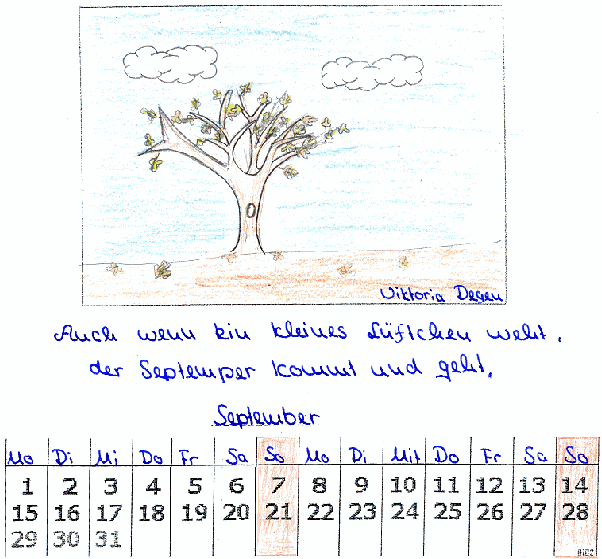 Viktoria Degen
Auch wenn ein kleines Lüftchen weht,
der Septemper kommt und geht.
September
Mo Di Mi Do Fr Sa So Mo Di Mit Do Fr Sa So
1 2 3 4 5 6 7 8 9 10 11 12 13 14
15 16 17 18 19 20 21 22 23 24 25 26 27 28
29 30 31